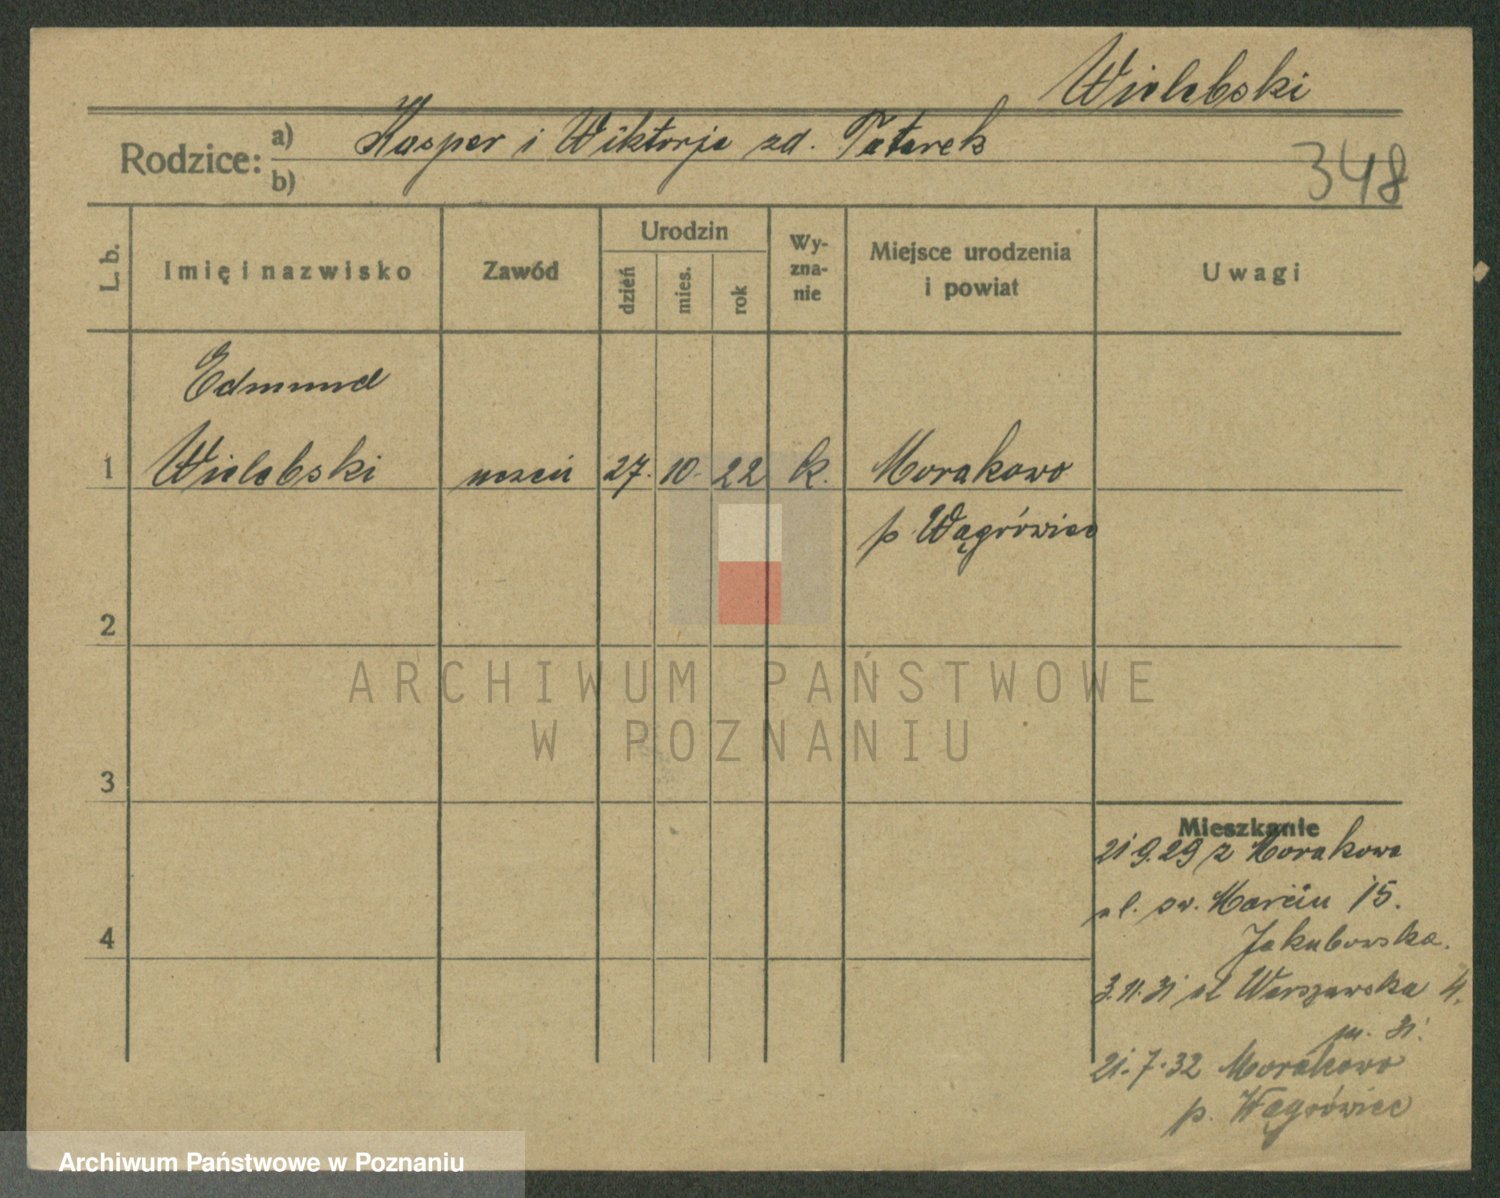 Wielebski
Rodzice: a) Kasper i Wiktorja zd. Tatarek
b)
348
L. b.
Imię i nazwisko
Zawód
Urodzin
dzień
mies.
rok
Wy-
zna-
nie
Miejsce urodzenia
i powiat
Uwagi
Edmund
1 Wielebski uczeń 27. 10. 22 k. Morakowo
p. Wągrówiec
2
3
4
Mieszkanie
21.9.29 z Morakowa
ul. św. Marcin 15.
Jakubowska.
3.11.31 ul Warszawska 4.
m. 31.
21.7.32 Morakowo
p. Wągrówiec
ARCHIWUM PAŃSTWOWE
W POZNANIU
Archiwum Państwowe w Poznaniu